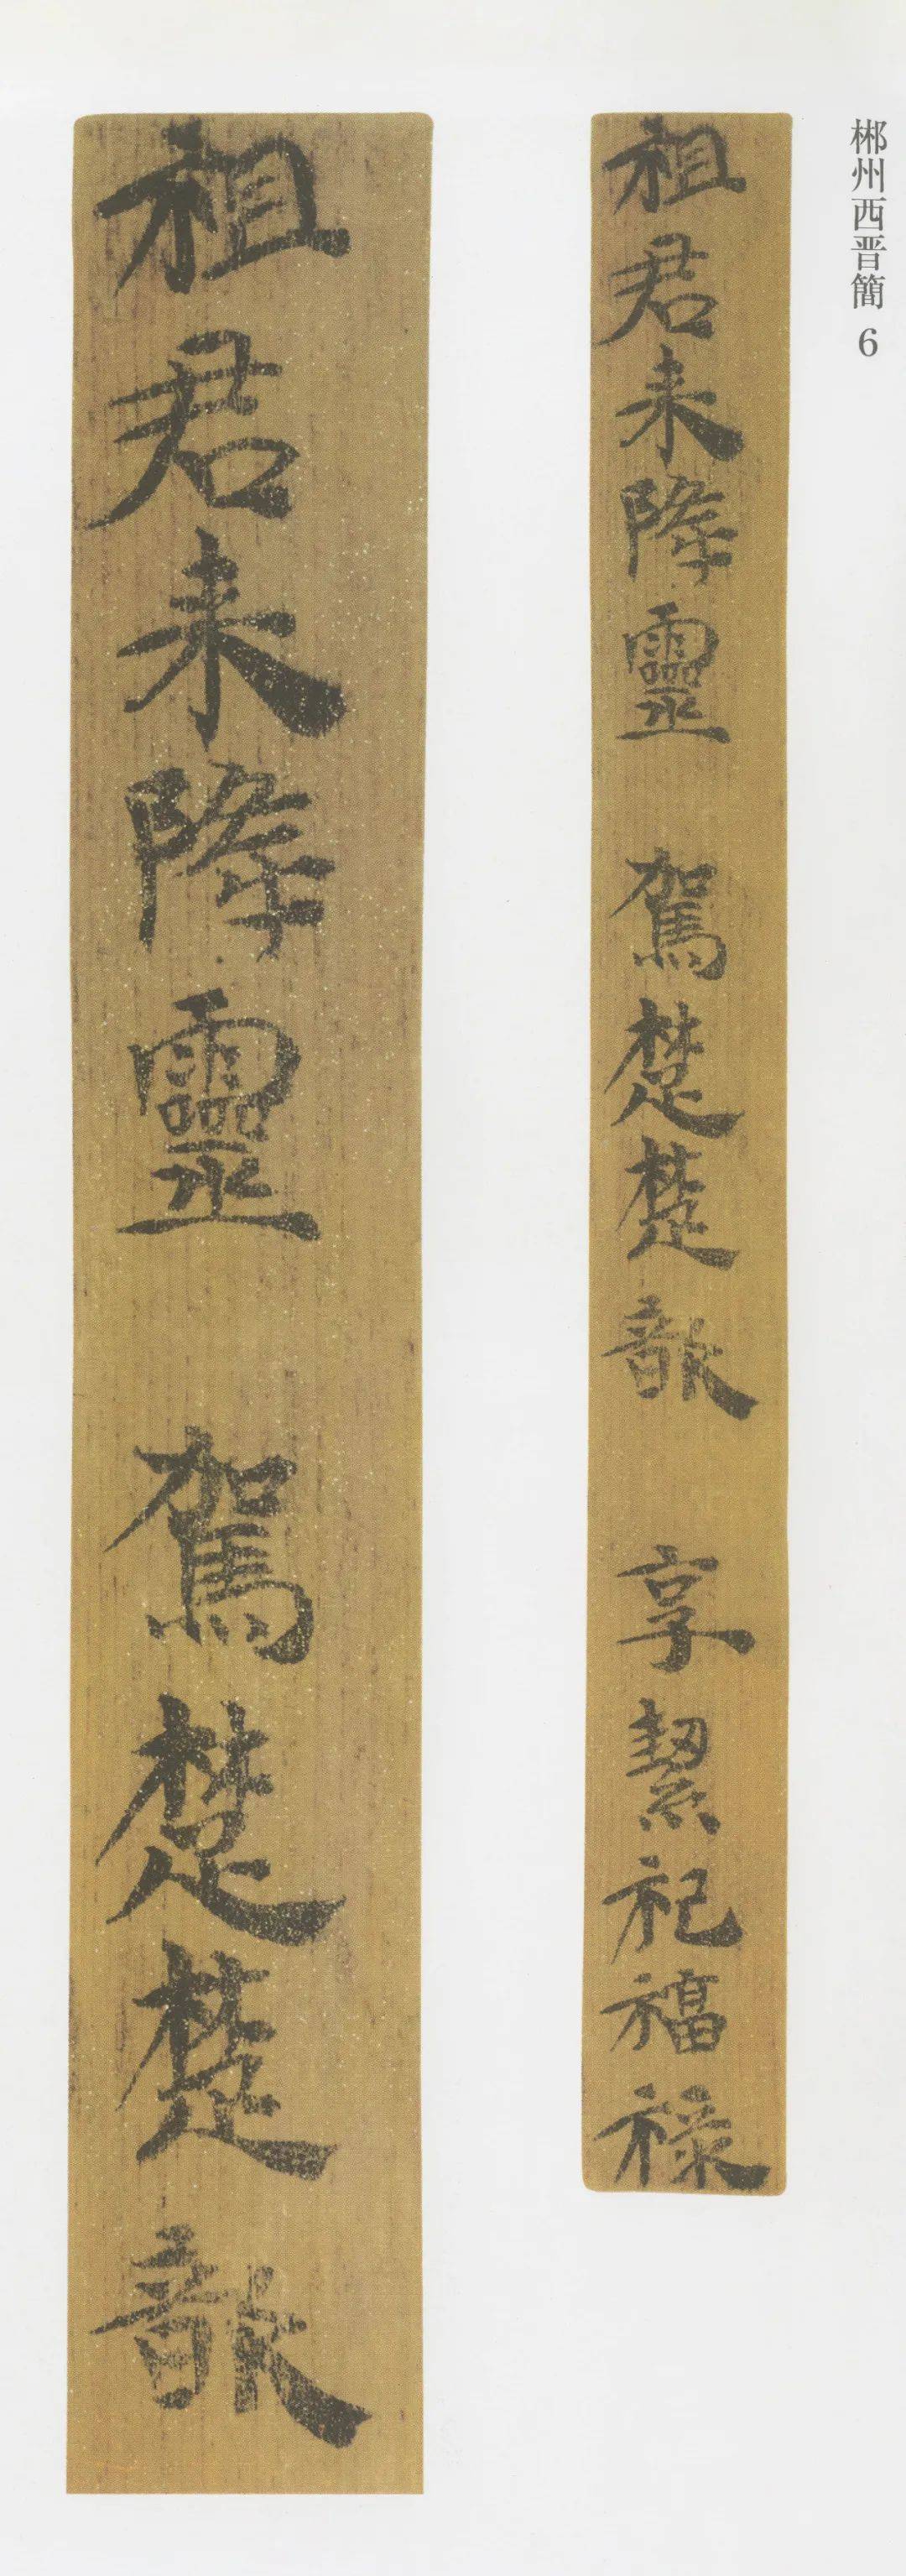 郴州西晋簡 6
祖君来降靈 駕楚楚歆 享絜祀福禄
祖君来降靈 駕楚楚歆